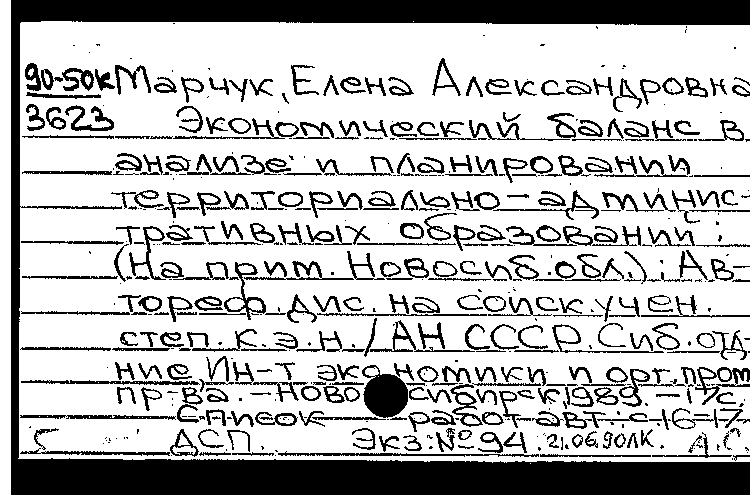 90-50к Марчук, Елена Александровна
3623 Экономический баланс в
анализе и планировании
территориально-админис-
тративных образований:
(На прим. Новосиб. обл.): Ав-
тореф. дис. на соиск. учен.
степ. к.э.н. / АН СССР. Сиб. отд-
ние, Ин-т экономики и орг. пром.
пр-ва. - Новосибирск, 1989. - 17 с.
Список работ авт.: с. 16-17
ДСП. Экз: № 94. 21.06.90 ЛК. А.С.